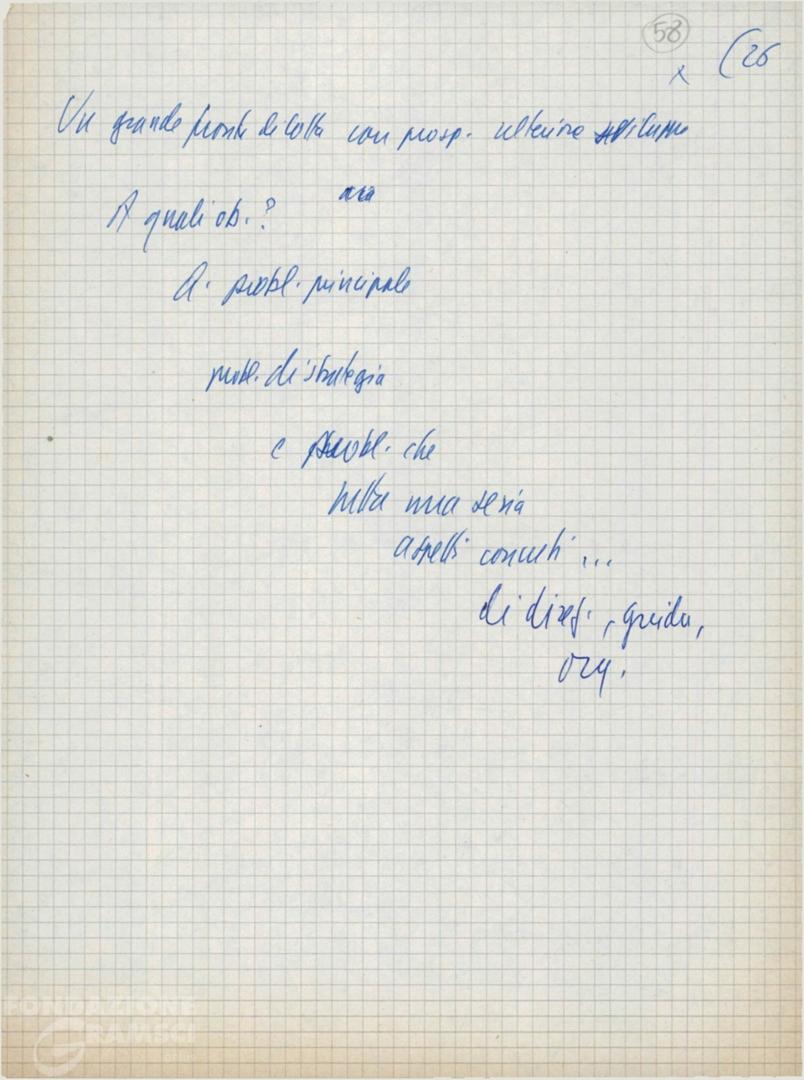 58
x (26
Un grande fronte di lotta con prosp. ulteriore sviluppo
ora
A quali ob.?
A. probl. principale
probl. di strategia
e probl. che
tutta una serie
aspetti concreti ...
di direz., guida,
org.
FONDAZIONE
GRAMSCI